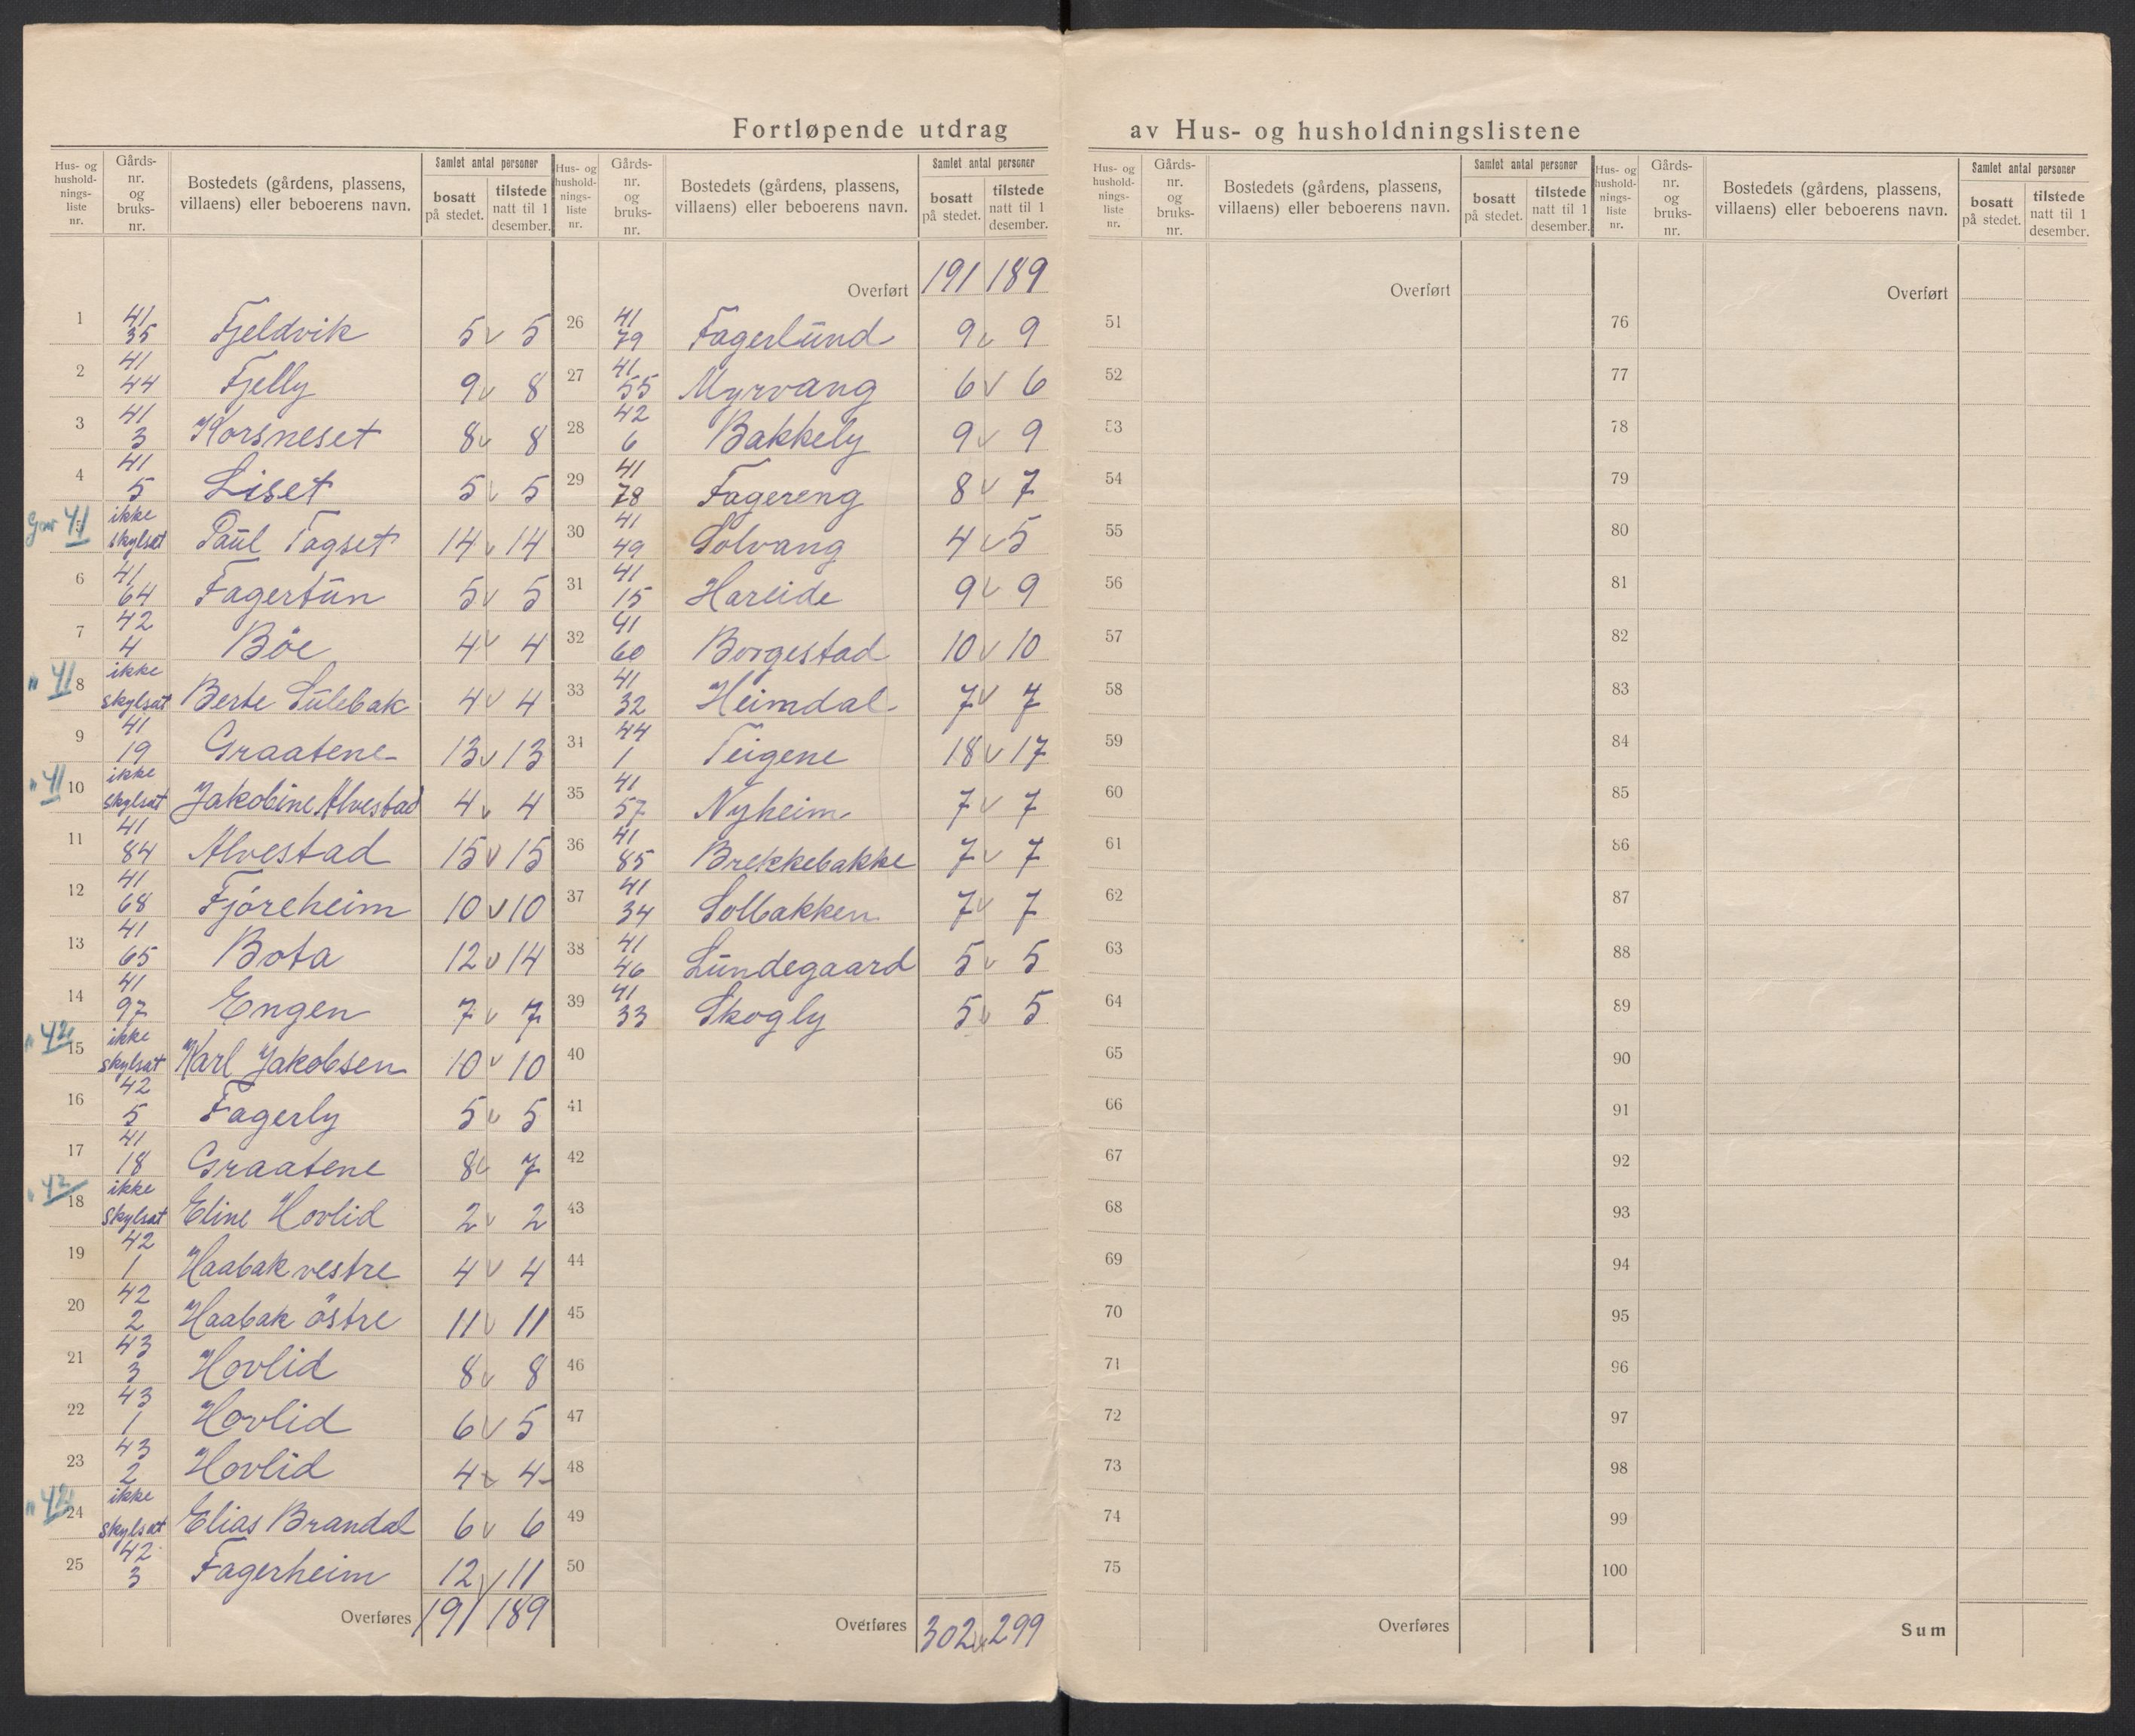 Fortløpende utdrag av Hus- og husholdningslistene
Hus- og husholdningsliste nr. | Gårds-nr. og bruks-nr. | Bostedets (gårdens, plassens, villaens) eller beboerens navn. | Samlet antal personer | bosatt på stedet. | tilstede natt til 1 desember.
1 | 41 35 | Fjeldvik | 5 v 5
2 | 41 44 | Fjelly | 9 v 8
3 | 41 3 | Korsneset | 8 v 8
4 | 41 5 | Liset | 5 v 5
Gnr 41 | ikke skylsat | Paul Tagset | 14 v 14
6 | 41 64 | Fagertun | 5 v 5
7 | 42 4 | Böe | 4 v 4
" 41 | 8 | ikke skylsat | Berte Sulebak | 4 v 4
9 | 41 19 | Graatene | 13 v 13
" 41 | 10 | ikke skylsat | Jakobine Alvestad | 4 v 4
11 | 41 84 | Alvestad | 15 v 15
12 | 41 68 | Fjöreheim | 10 v 10
13 | 41 65 | Bota | 12 v 14
14 | 41 97 | Engen | 7 v 7
" 42 | 15 | ikke skylsat | Karl Jakobsen | 10 v 10
16 | 42 5 | Fagerly | 5 v 5
17 | 41 18 | Graatene | 8 v 7
" 42 | 18 | ikke skylsat | Eline Hovlid | 2 v 2
19 | 42 1 | Haabak vestre | 4 v 4
20 | 42 2 | Haabak östre | 11 v 11
21 | 43 3 | Hovlid | 8 v 8
22 | 43 1 | Hovlid | 6 v 5
23 | 43 2 | Hovlid | 4 v 4
" 42 | 24 | ikke skylsat | Elias Brandal | 6 v 6
25 | 42 3 | Fagerheim | 12 v 11
Overføres 191 189
Hus- og husholdningsliste nr. | Gårds-nr. og bruks-nr. | Bostedets (gårdens, plassens, villaens) eller beboerens navn. | Samlet antal personer | bosatt på stedet. | tilstede natt til 1 desember.
Overført 191 189
26 | 41 79 | Fagerlund | 9 v 9
27 | 41 55 | Myrvang | 6 v 6
28 | 42 6 | Bakkely | 9 v 9
29 | 41 78 | Fagereng | 8 v 7
30 | 41 49 | Solvang | 4 v 5
31 | 41 15 | Hareide | 9 v 9
32 | 41 60 | Borgestad | 10 v 10
33 | 41 32 | Heimdal | 7 v 7
34 | 44 1 | Teigene | 18 v 17
35 | 41 57 | Nyheim | 7 v 7
36 | 41 85 | Brekkebakke | 7 v 7
37 | 41 34 | Solbakken | 7 v 7
38 | 41 46 | Lundegaard | 5 v 5
39 | 41 33 | Skogly | 5 v 5
40
41
42
43
44
45
46
47
48
49
50
Overføres 302 v 299
Hus- og husholdningsliste nr. | Gårds-nr. og bruks-nr. | Bostedets (gårdens, plassens, villaens) eller beboerens navn. | Samlet antal personer | bosatt på stedet. | tilstede natt til 1 desember.
Overført
51
52
53
54
55
56
57
58
59
60
61
62
63
64
65
66
67
68
69
70
71
72
73
74
75
Overføres
Hus- og husholdningsliste nr. | Gårds-nr. og bruks-nr. | Bostedets (gårdens, plassens, villaens) eller beboerens navn. | Samlet antal personer | bosatt på stedet. | tilstede natt til 1 desember.
Overført
76
77
78
79
80
81
82
83
84
85
86
87
88
89
90
91
92
93
94
95
96
97
98
99
100
Sum